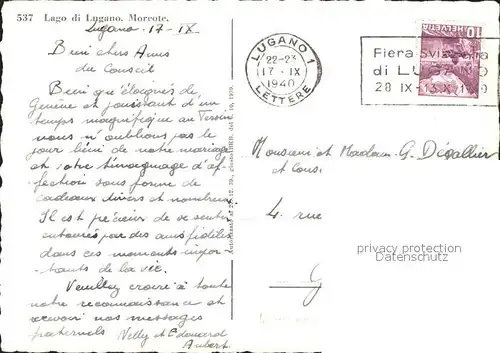 537 Lago di Lugano. Morcote.
Lugano 17-IX
Bien chers Amis
du Conseil
Bien qu'éloignés de
Genève et jouissant d'un
temps magnifique au Tessin
nous n'oublions pas le
jour béni de notre mariage
et votre témoignage d'af-
fection sous forme de
cadeaux divers et nombreux.
Il est précieux de se sentir
entourés par des amis fidèles
dans ces moments impor-
tants de la vie.
Veuillez croire à toute
notre reconnaissance et
recevoir nos messages
fraternels Nelly et Edouard
Aubert
LUGANO 1
22-23
17-IX
1940
LETTERE
HELVETIA
10
Fiera Svizzera
di LUGANO
28 IX-13 X 1940
Monsieur et Madame G. Dégallier
et Cons
4. rue
G
privacy protection
Datenschutz